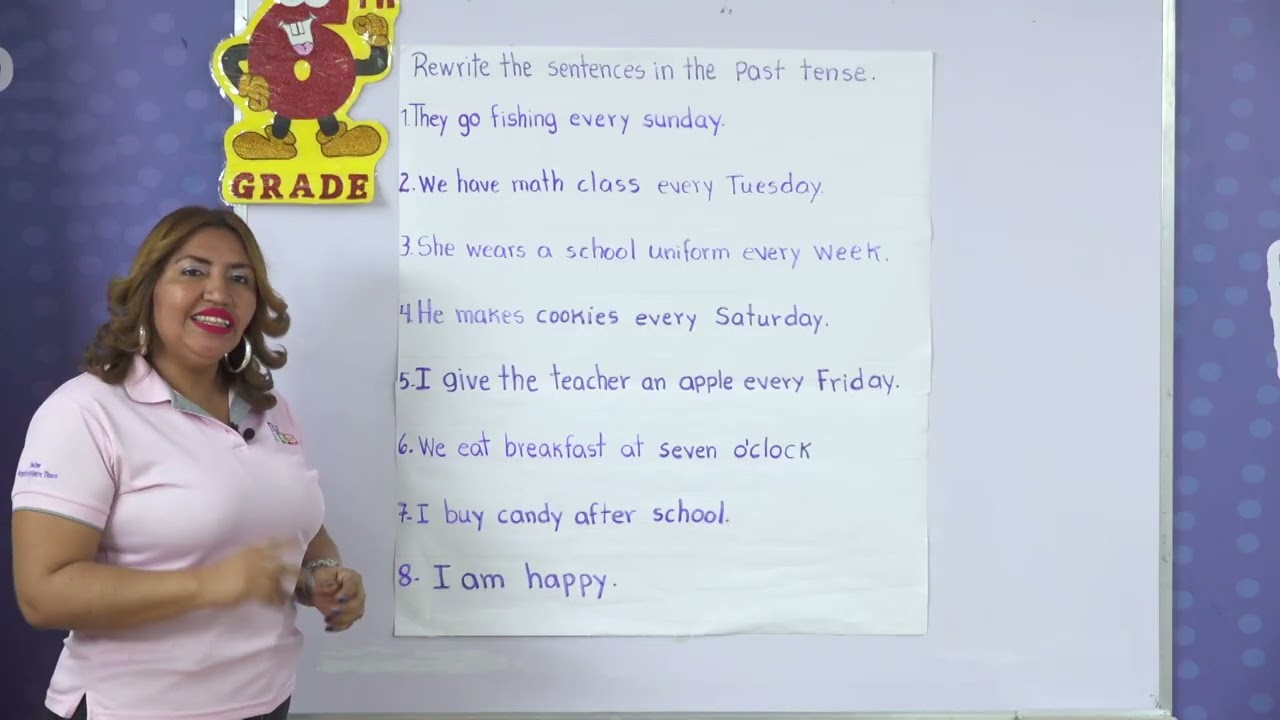 TH
GRADE
Rewrite the sentences in the past tense.
1.They go fishing every sunday.
2. We have math class every Tuesday.
3. She wears a school uniform every week.
4. He makes cookies every Saturday.
5. I give the teacher an apple every Friday.
6. We eat breakfast at seven o'clock
7. I buy candy after school.
8- I am happy.